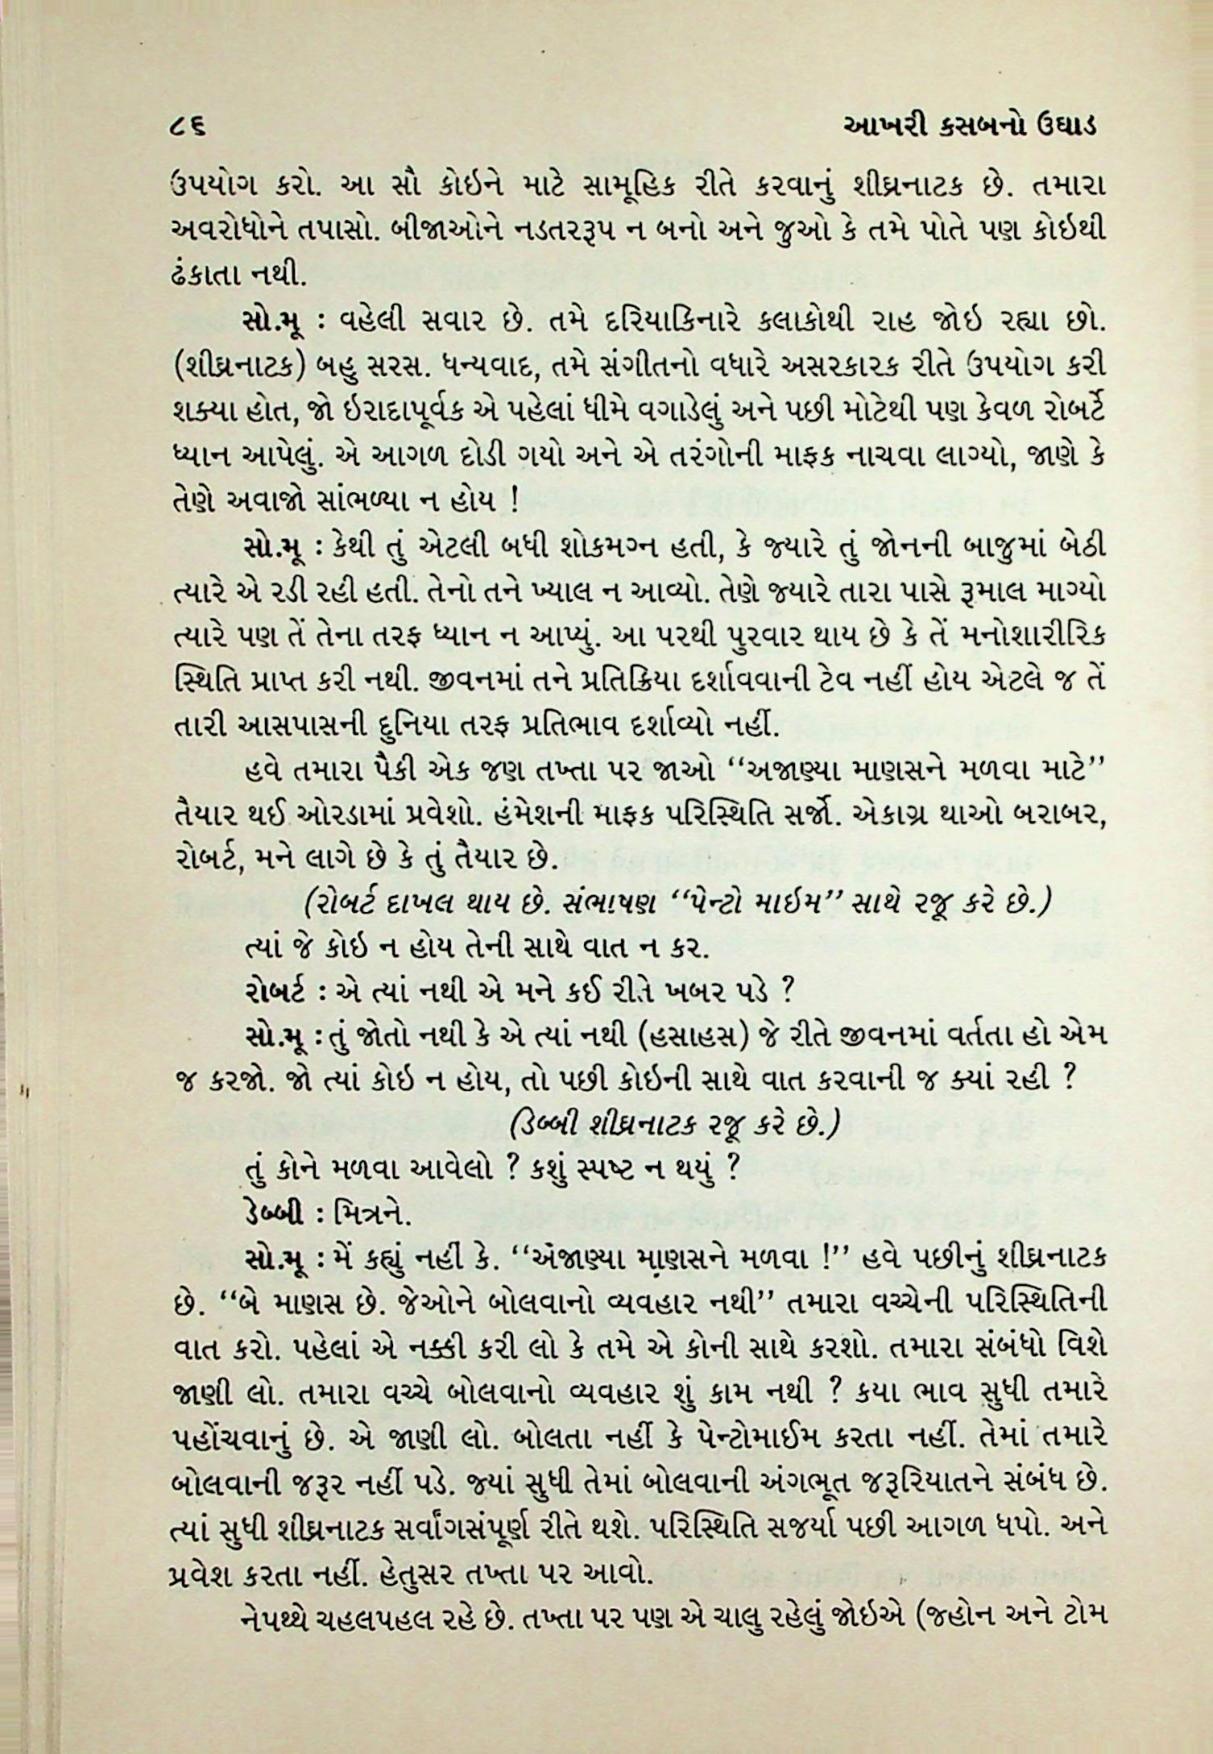 ૮૬ આખરી કસબનો ઉઘાડ
ઉપયોગ કરો. આ સૌ કોઇને માટે સામૂહિક રીતે કરવાનું શીઘ્રનાટક છે. તમારા
અવરોધોને તપાસો. બીજાઓને નડતરરૂપ ન બનો અને જુઓ કે તમે પોતે પણ કોઇથી
ઢંકાતા નથી.
સો.મૂ : વહેલી સવાર છે. તમે દરિયાકિનારે કલાકોથી રાહ જોઇ રહ્યા છો.
(શીઘ્રનાટક) બહુ સરસ. ધન્યવાદ, તમે સંગીતનો વધારે અસરકારક રીતે ઉપયોગ કરી
શક્યા હોત, જો ઇરાદાપૂર્વક એ પહેલાં ધીમે વગાડેલું અને પછી મોટેથી પણ કેવળ રોબર્ટે
ધ્યાન આપેલું. એ આગળ દોડી ગયો અને એ તરંગોની માફક નાચવા લાગ્યો, જાણે કે
તેણે અવાજો સાંભળ્યા ન હોય !
સો.મૂ : કેથી તું એટલી બધી શોકમગ્ન હતી, કે જ્યારે તું જોનની બાજુમાં બેઠી
ત્યારે એ રડી રહી હતી. તેનો તને ખ્યાલ ન આવ્યો. તેણે જ્યારે તારા પાસે રૂમાલ માગ્યો
ત્યારે પણ તેં તેના તરફ ધ્યાન ન આપ્યું. આ પરથી પુરવાર થાય છે કે તેં મનોશારીરિક
સ્થિતિ પ્રાપ્ત કરી નથી. જીવનમાં તને પ્રતિક્રિયા દર્શાવવાની ટેવ નહીં હોય એટલે જ તેં
તારી આસપાસની દુનિયા તરફ પ્રતિભાવ દર્શાવ્યો નહીં.
હવે તમારા પૈકી એક જણ તખ્તા પર જાઓ “અજાણ્યા માણસને મળવા માટે”
તૈયાર થઈ ઓરડામાં પ્રવેશો. હંમેશની માફક પરિસ્થિતિ સર્જો. એકાગ્ર થાઓ બરાબર,
રોબર્ટ, મને લાગે છે કે તું તૈયાર છે.
(રોબર્ટ દાખલ થાય છે. સંભાષણ “પેન્ટો માઇમ” સાથે રજૂ કરે છે.)
ત્યાં જે કોઇ ન હોય તેની સાથે વાત ન કર.
રોબર્ટ : એ ત્યાં નથી એ મને કઈ રીતે ખબર પડે ?
સો.મૂ : તું જોતો નથી કે એ ત્યાં નથી (હસાહસ) જે રીતે જીવનમાં વર્તતા હો એમ
જ કરજો. જો ત્યાં કોઇ ન હોય, તો પછી કોઇની સાથે વાત કરવાની જ ક્યાં રહી ?
(ડેબ્બી શીઘ્રનાટક રજૂ કરે છે.)
તું કોને મળવા આવેલો ? કશું સ્પષ્ટ ન થયું ?
ડેબ્બી : મિત્રને.
સો.મૂ : મેં કહ્યું નહીં કે. “અજાણ્યા માણસને મળવા !” હવે પછીનું શીઘ્રનાટક
છે. “બે માણસ છે. જેઓને બોલવાનો વ્યવહાર નથી” તમારા વચ્ચેની પરિસ્થિતિની
વાત કરો. પહેલાં એ નક્કી કરી લો કે તમે એ કોની સાથે કરશો. તમારા સંબંધો વિશે
જાણી લો. તમારા વચ્ચે બોલવાનો વ્યવહાર શું કામ નથી ? કયા ભાવ સુધી તમારે
પહોંચવાનું છે. એ જાણી લો. બોલતા નહીં કે પેન્ટોમાઈમ કરતા નહીં. તેમાં તમારે
બોલવાની જરૂર નહીં પડે. જ્યાં સુધી તેમાં બોલવાની અંગભૂત જરૂરિયાતને સંબંધ છે.
ત્યાં સુધી શીઘ્રનાટક સર્વાંગસંપૂર્ણ રીતે થશે. પરિસ્થિતિ સજર્યા પછી આગળ ધપો. અને
પ્રવેશ કરતા નહીં. હેતુસર તખ્તા પર આવો.
નેપથ્થે ચહલપહલ રહે છે. તખ્તા પર પણ એ ચાલુ રહેલું જોઇએ (જ્હોન અને ટોમ